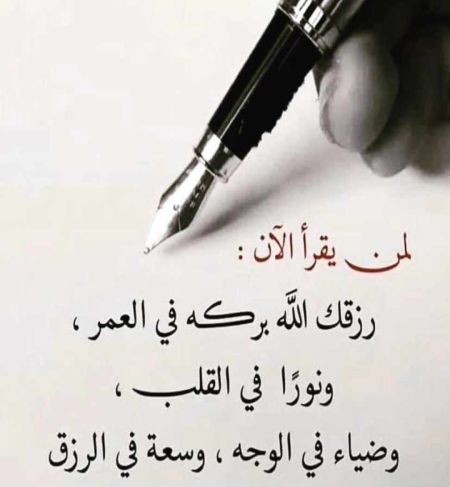 لمن يقرأ الآن :
رزقك اللَّه بركه في العمر ،
ونورًا في القلب ،
وضياء في الوجه ، وسعة في الرزق